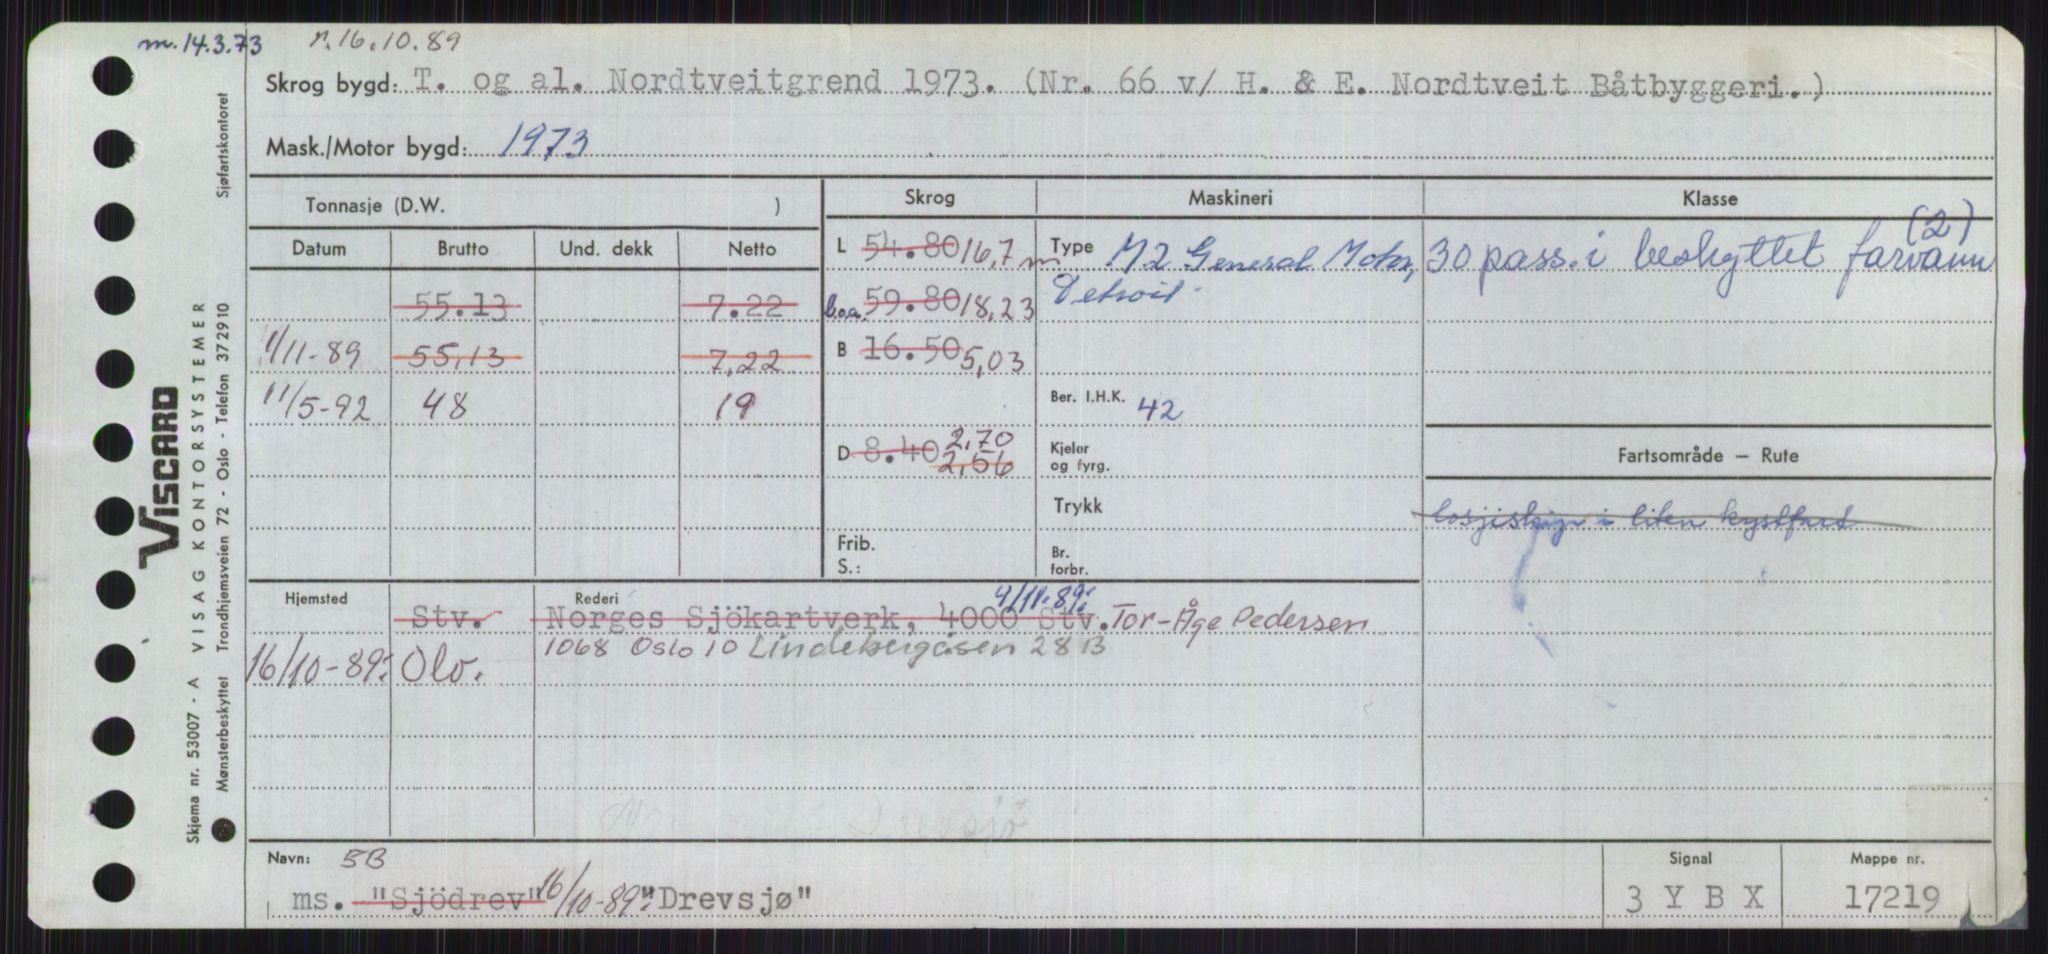 m. 14.3.73 r. 16.10.89
Skrog bygd: T. og al. Nordtveitgrend 1973. (Nr. 66 v/ H. & E. Nordtveit Båtbyggeri.)
Mask./Motor bygd: 1973
Tonnasje (D.W. )
Skrog
Maskineri
Klasse
Datum Brutto Und. dekk Netto
L 54.80 16,7 m
Type M2 General Motor,
30 pass. i beskyttet farvann (2)
55.13 7.22
b.o.a. 59.80 18,23
Detroit
1/11-89 55,13 7,22
B 16.50 5,03
11/5-92 48 19
Ber. I.H.K. 42
D 8.40 2,56 2,70
Kjeler
og fyrg.
Fartsområde — Rute
Trykk
losjiskip i liten kystfart
Frib.
S.:
Br.
forbr.
Hjemsted
Rederi
Stv. Norges Sjökartverk, 4000 Stv. 4/11-89: Tor-Åge Pedersen
1068 Oslo 10 Lindebergåsen 28 B
16/10-89: Olv.
Drevsjö
Navn: 5B
ms. "Sjödrev" 16/10-89: "Drevsjø"
Signal
3 Y B X
Mappe nr.
17219
VISCARD
Skjema nr. 53007 - A VISAG KONTORSYSTEMER
Mønsterbeskyttet Trondhjemsveien 72 - Oslo - Telefon 372910 Sjøfartskontoret